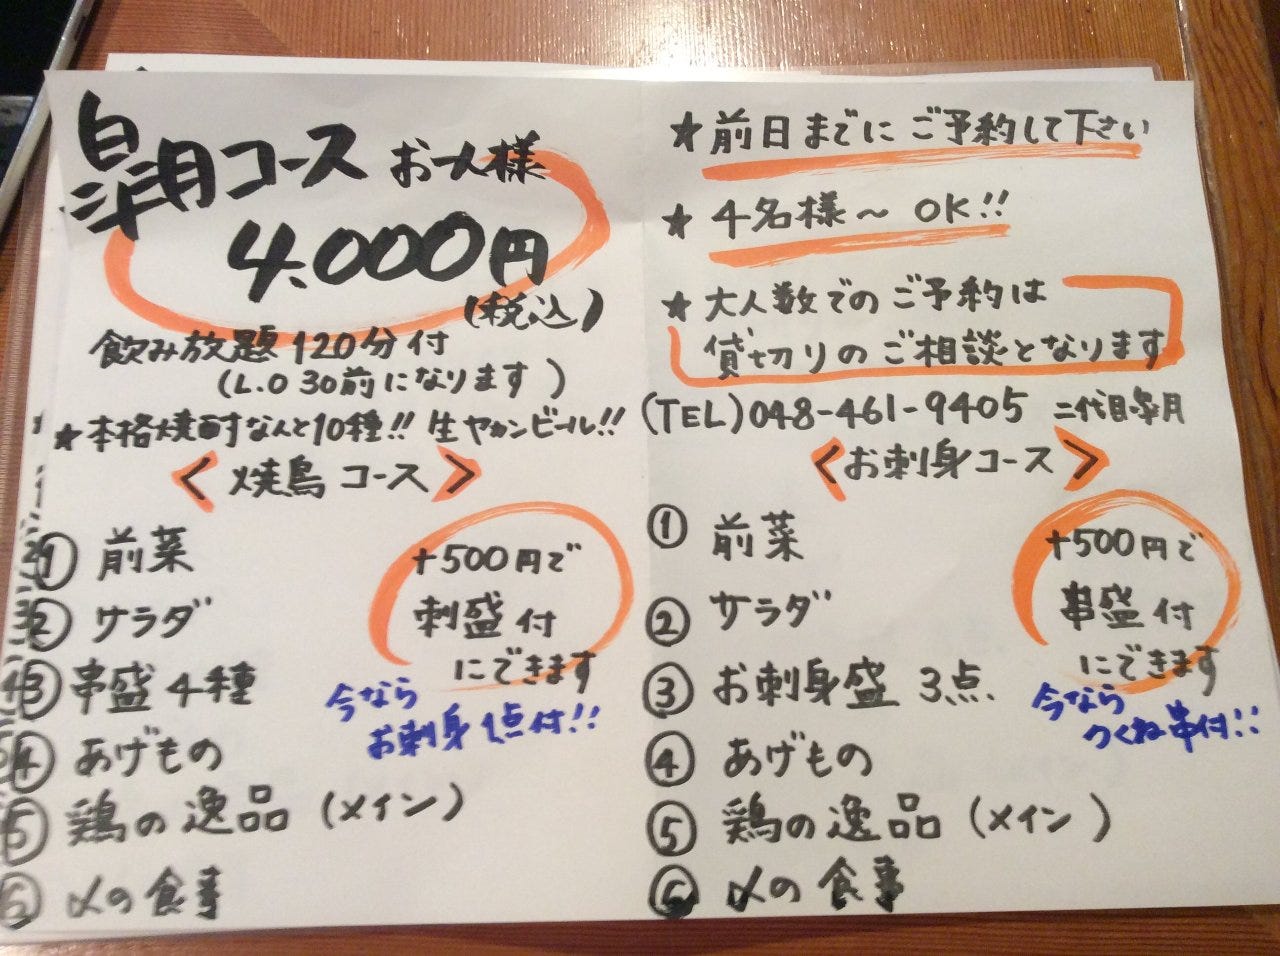 皐月コース お一人様
4,000円
(税込)
飲み放題120分付
(L.O 30前になります)
★本格焼酎なんと10種!! 生ヤカンビール!!
<焼鳥コース>
① 前菜
② サラダ
③ 串盛4種
④ あげもの
⑤ 鶏の逸品 (メイン)
⑥ 〆の食事
+500円で
刺盛付
にできます
今なら
お刺身1点付!!
★前日までにご予約して下さい
★4名様〜 OK!!
★大人数でのご予約は
貸切りのご相談となります
(TEL) 048-461-9405 二代目皐月
<お刺身コース>
① 前菜
② サラダ
③ お刺身盛 3点
④ あげもの
⑤ 鶏の逸品 (メイン)
⑥ 〆の食事
+500円で
串盛付
にできます
今なら
つくね串付!!